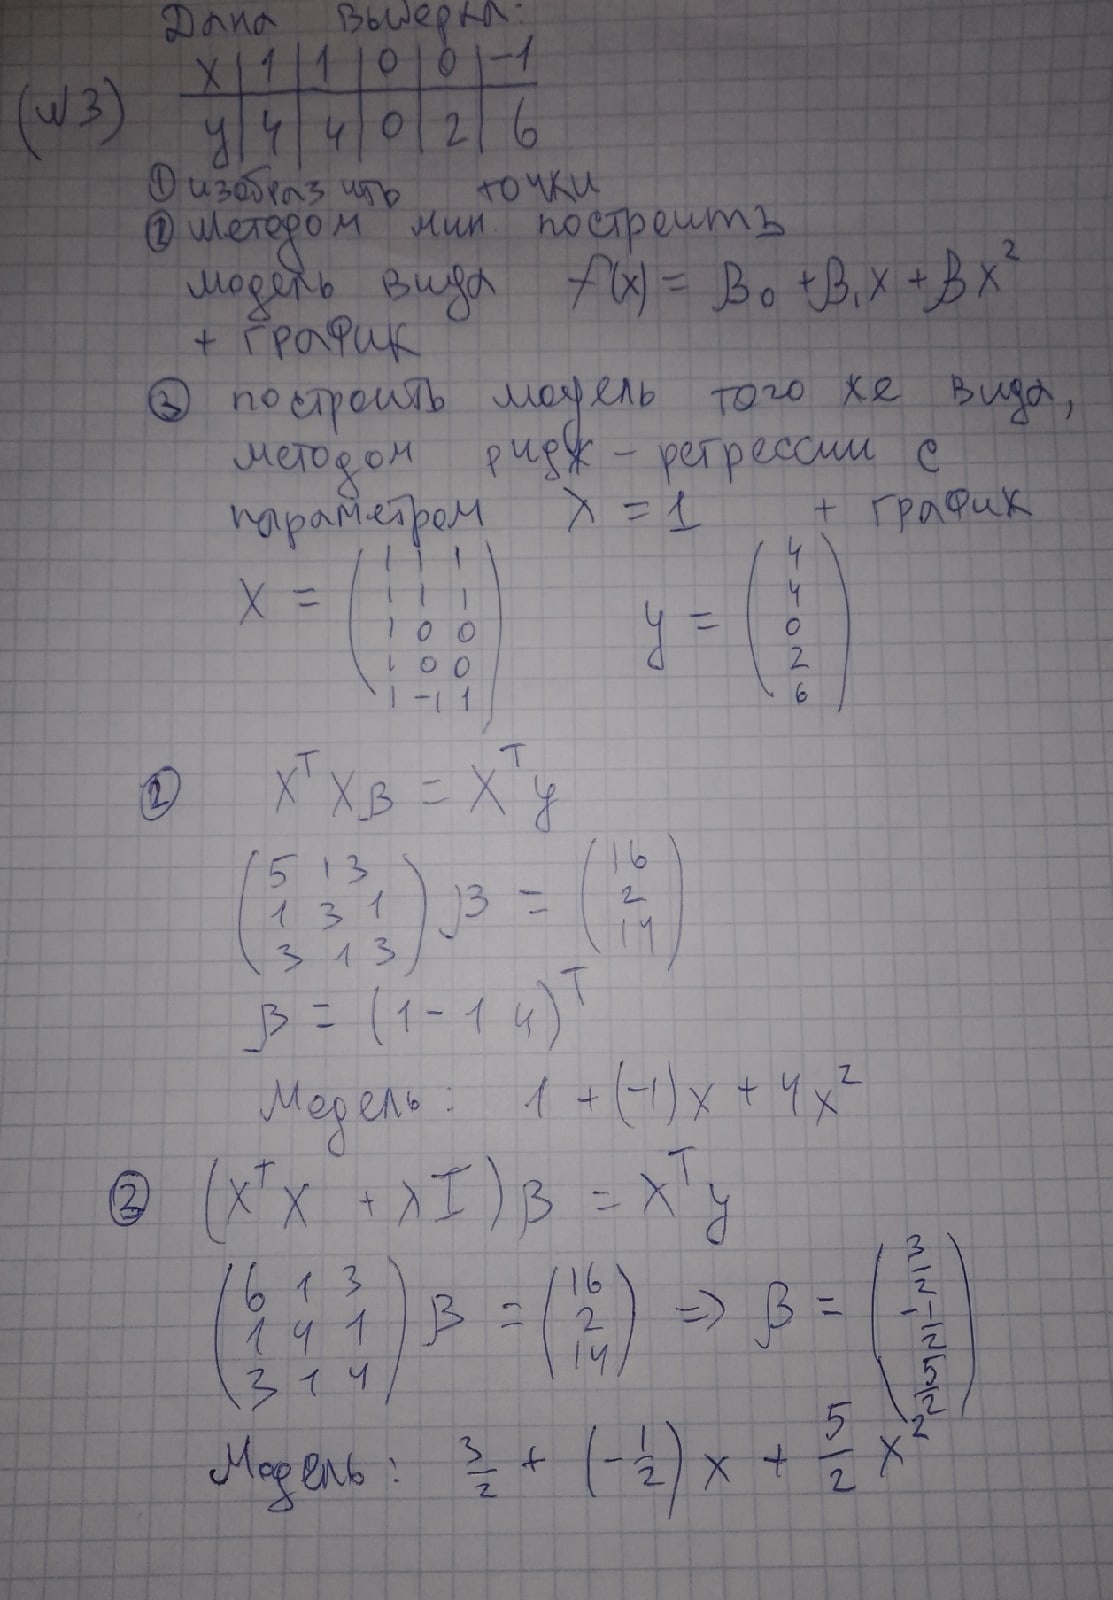 Дана выборка:
(№3)
x | 1 | 1 | 0 | 0 | -1
y | 4 | 4 | 0 | 2 | 6
① изобразить точки
② Методом мин. построить
модель вида f(x) = β₀ + β₁x + βx²
+ график
③ построить модель того же вида,
методом ридж - регрессии с
параметром λ = 1 + график
X = (1 1 1; 1 1 1; 1 0 0; 1 0 0; 1 -1 1) y = (4; 4; 0; 2; 6)
② XᵀXβ = Xᵀy
(5 1 3; 1 3 1; 3 1 3) β = (16; 2; 14)
β = (1 - 1 4)ᵀ
Модель: 1 + (-1)x + 4x²
③ (XᵀX + λI)β = Xᵀy
(6 1 3; 1 4 1; 3 1 4) β = (16; 2; 14) => β = (3/2; -1/2; 5/2)
Модель: 3/2 + (-1/2)x + 5/2 x²